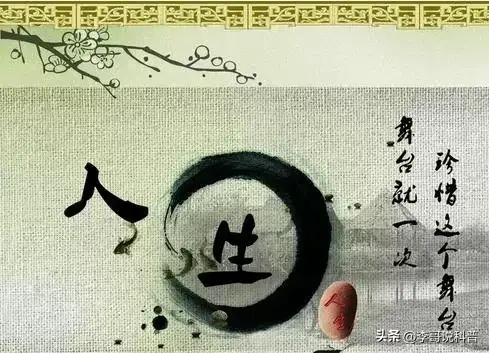 人生
珍惜这个舞台
舞台就一次
人生
头条 @李哥说科普